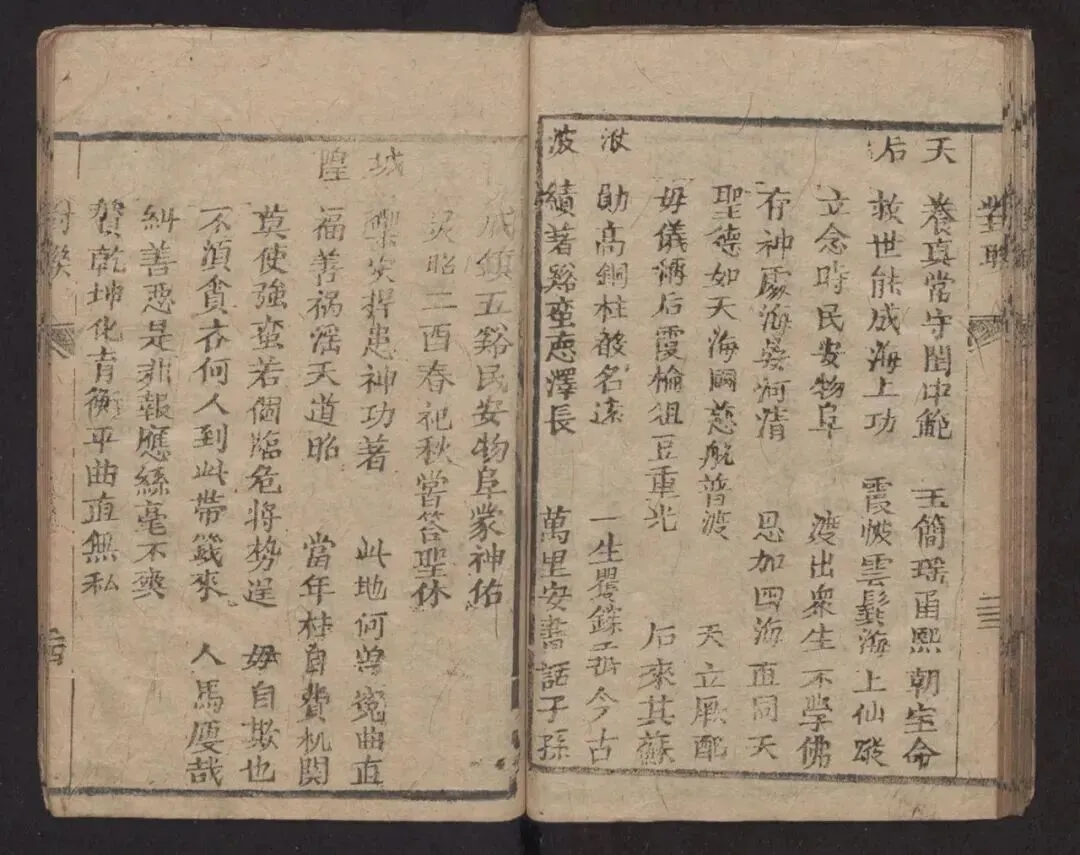 對聯
天 養真常守閨中範 玉簡瑤函熙朝宝命
后 救世能成海上功 霞帔雲鬟海上仙蹤
立念時民安物阜 渡出衆生不學佛
存神處海晏河清 恩加四海直同天
聖德如天海國慈航普渡 天立厥配
毋儀溝后霞榆俎豆重光 后來其蘇
伏 勛高銅柱敵名遠 一生矍鑠 今古
波 績著谿蛮恵澤長 萬里安書話子孫
鎮五谿民安物阜蒙神佑
灵昭二酉春祀秋嘗答聖休
城 禦灾捍患神功著 此地何曾寃曲直
隍 福善禍滛天道昭 當年枉自費机関
莫使強蛮若個臨危將势逞 毋自欺也
不須貪 何人到此帶 來 人馬廋哉
糾善惡是非報應絲毫不爽
賛乾坤化育衡平曲直無私